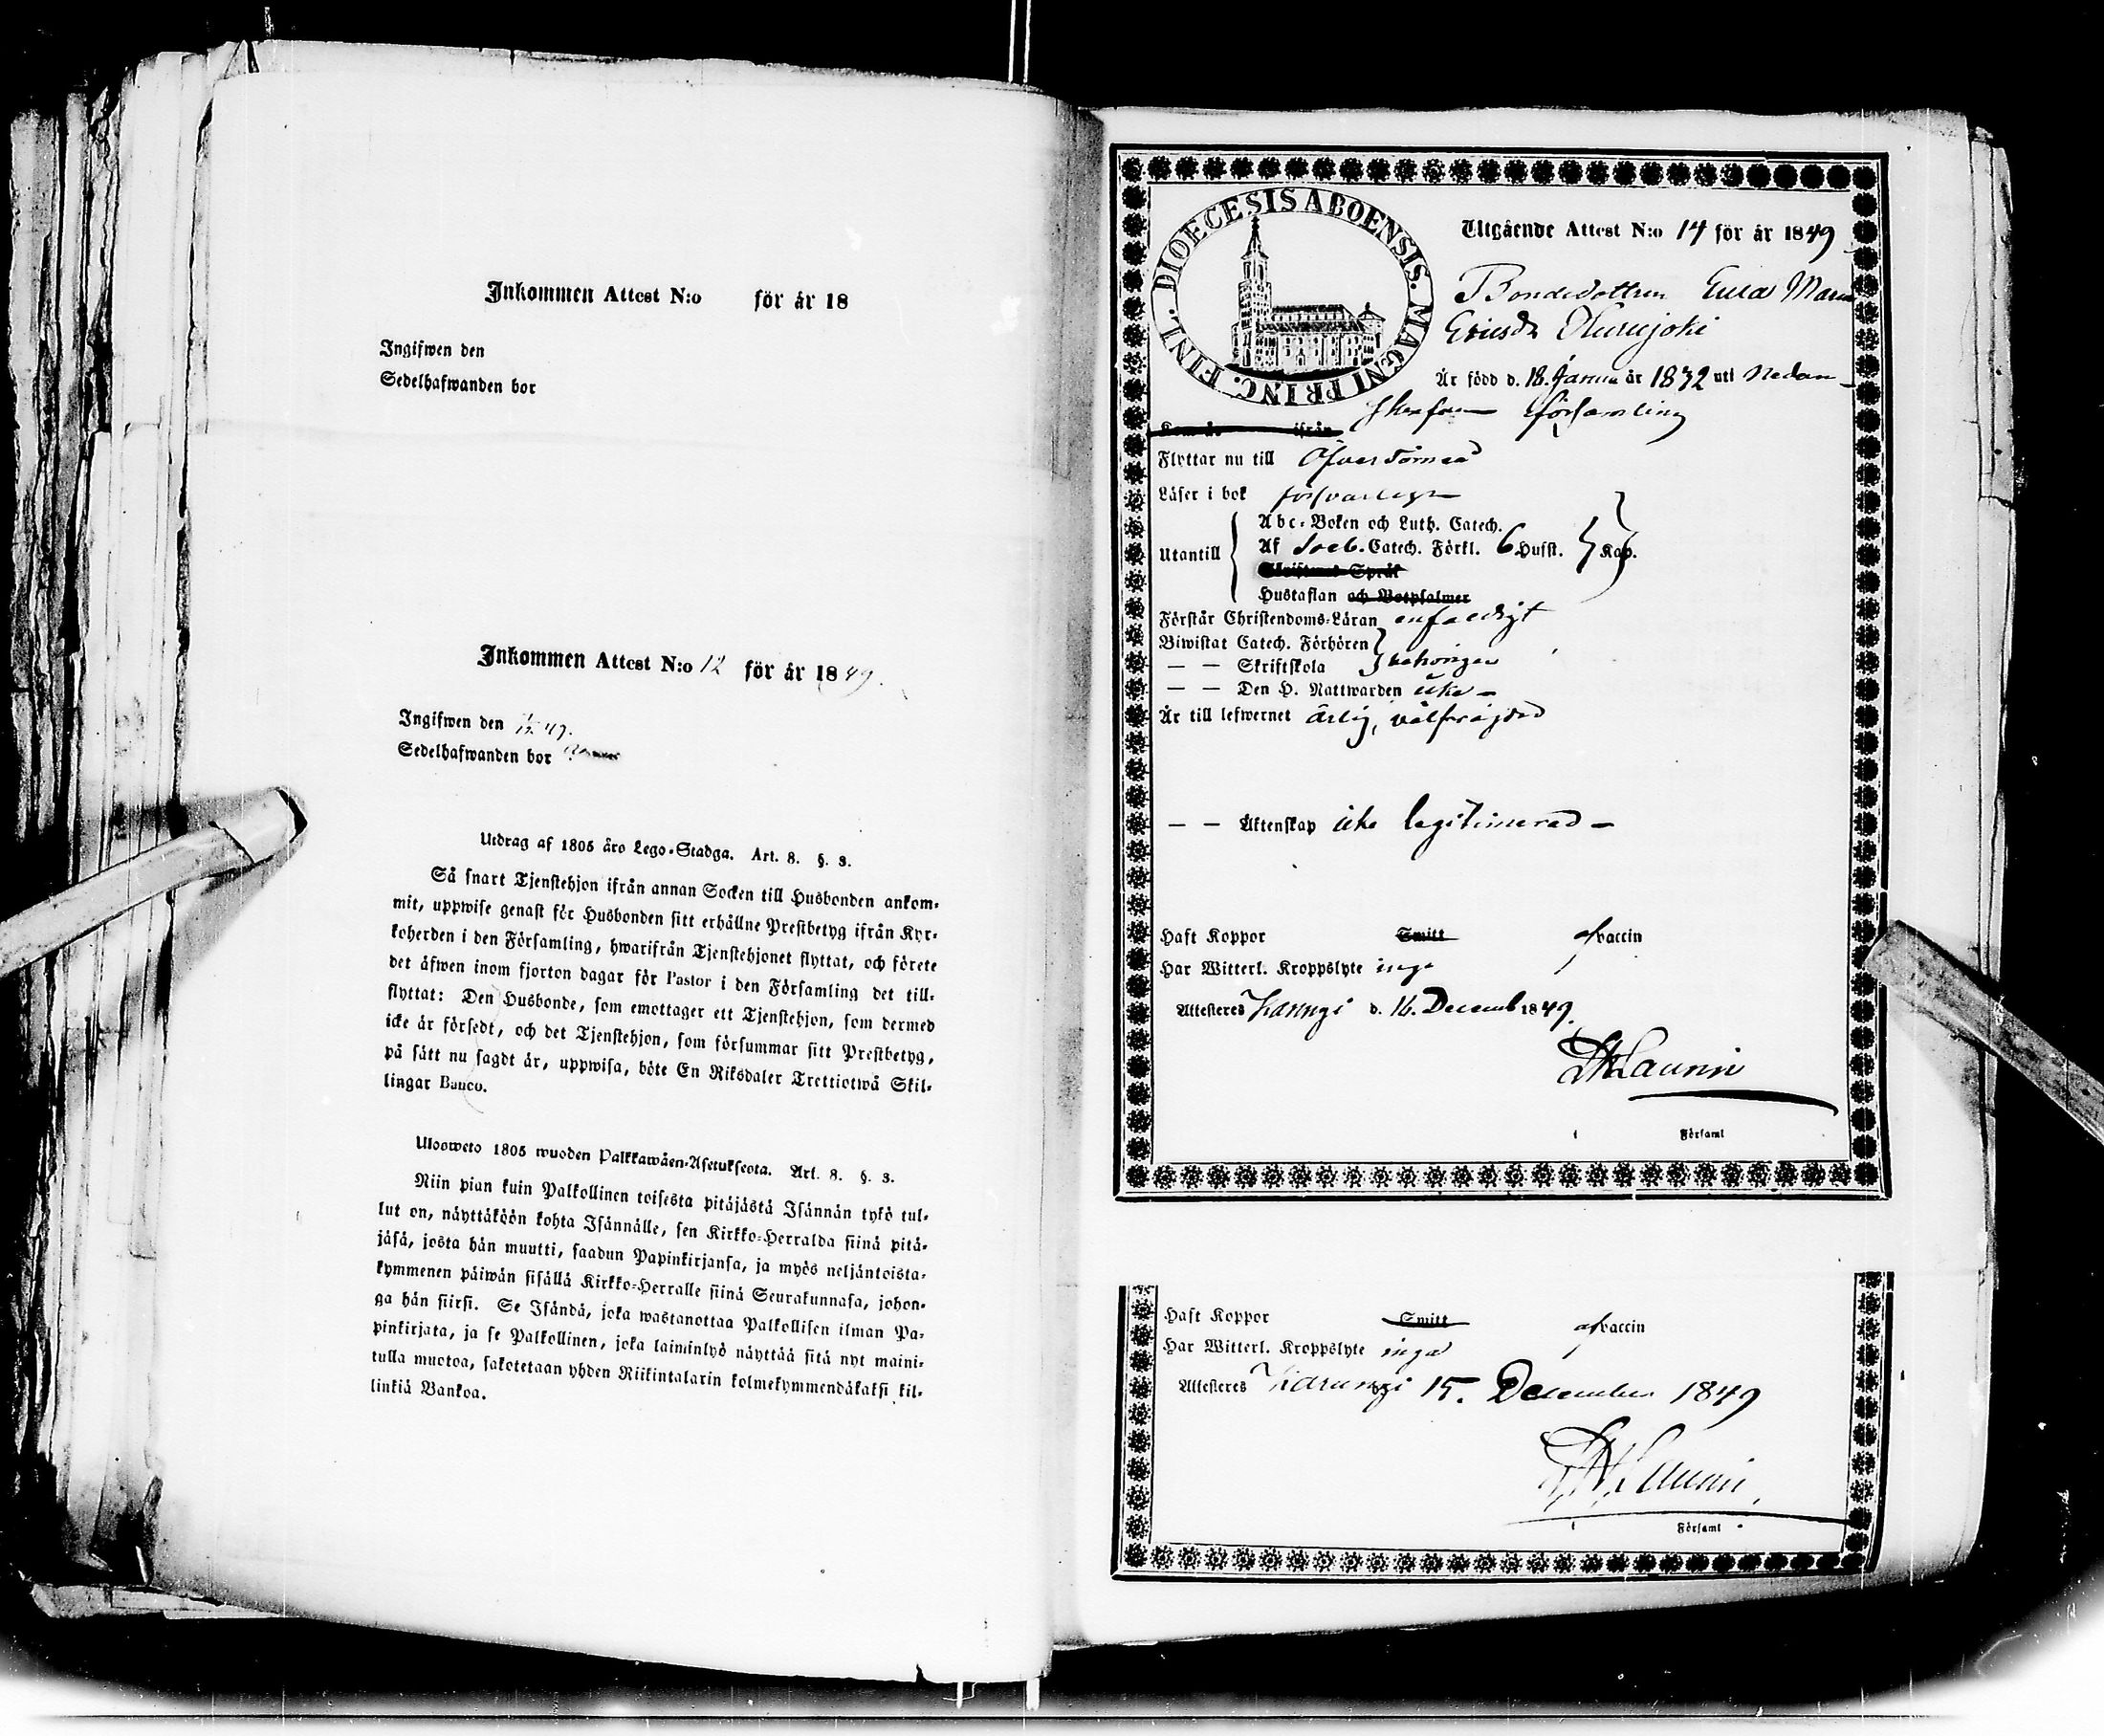 Inkommen Attest N:o för år 18
Ingifwen den
Sedelhafwanden bor
Inkommen Attest N:o 12 för år 1849.
Ingifwen den
Sedelhafwanden bor
Utdrag af 1805 års Lego-Stadga. Art. 8. §. 3.
Så snart Tjenstehjon ifrån annan Socken till Husbonden ankom-
mit, uppwise genast för Husbonden sitt erhållne Prestbetyg ifrån Kyr-
koherden i den Församling, hwarifrån Tjenstehjonet flyttat, och förete
det äfwen inom fjorton dagar för Pastor i den Församling det till-
flyttat: Den Husbonde, som emottager ett Tjenstehjon, som dermed
icke är försedt, och det Tjenstehjon, som försummar sitt Prestbetyg,
på sätt nu sagdt är, uppwisa, böte En Riksdaler Trettiotwå Skil-
lingar Banco.
Ulosweto 1805 wuoden Palkkawäen-Asetuksesta. Art. 8. §. 3.
Niin pian kuin Palkollinen toisesta pitäjästä Isännän tykö tul-
lut on, näyttäköön kohta Isännälle, sen Kirkko-Herralda siinä pitä-
jäsä, josta hän muutti, saadun Papinkirjansa, ja myös neljäntoista-
kymmenen päiwän sisällä Kirkko-Herralle siinä Seurakunnasa, johon-
ga hän siirsi. Se Isändä, joka wastanottaa Palkollisen ilman Pa-
pinkirjata, ja se Palkollinen, joka laiminlyö näyttää sitä nyt maini-
tulla muotoa, sakotetaan yhden Riikintalarin kolmekymmendäkaksi kil-
linkiä Bankoa.
DIOECESIS ABOENSIS. MAGNI PRINC. FINL.
Utgående Attest N:o 14 för år 1849
Bondedottren Eva Maria
Ericsdr
Är född d. 18. Janua år 1832 uti Nedan-
församling
Kom år ifrån
Flyttar nu till Öfver Torneå
Läser i bok försvarligen
Utantill
Abc-Boken och Luth. Catech.
Af Sveb. Catech. Förkl. 6 Hufst. Kap.
Skriftenes Språk
Hustaflan och Botpsalmer
Förstår Christendoms-Läran enfaldigt
Biwistat Catech. Förhören
— — Skriftskola behörigen
— — Den H. Nattwarden icke –
Är till lefwernet ärlig, välfrejdad
— — Äktenskap icke legitimerad –
Haft Koppor Smitt af vaccin
Har Witterl. Kroppslyte inga
Attesteres Karungi d. 16. Decemb 1849.
Launi
Församl
Haft Koppor Smitt af vaccin
Har Witterl. Kroppslyte inga
Attesteres Karungi 15. December 1849
Launi
Församl